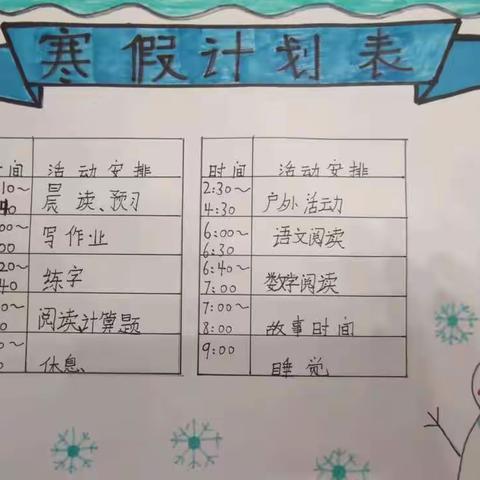 寒假计划表
间 活动安排
10~
40 晨读、预习
00~
00 写作业
20~
40 练字
0~
0 阅读计算题
0~
0 休息
时间 活动安排
2:30~
4:30 户外活动
6:00~
6:30 语文阅读
6:40~
7:00 数学阅读
7:00~
8:00 故事时间
9:00 睡觉